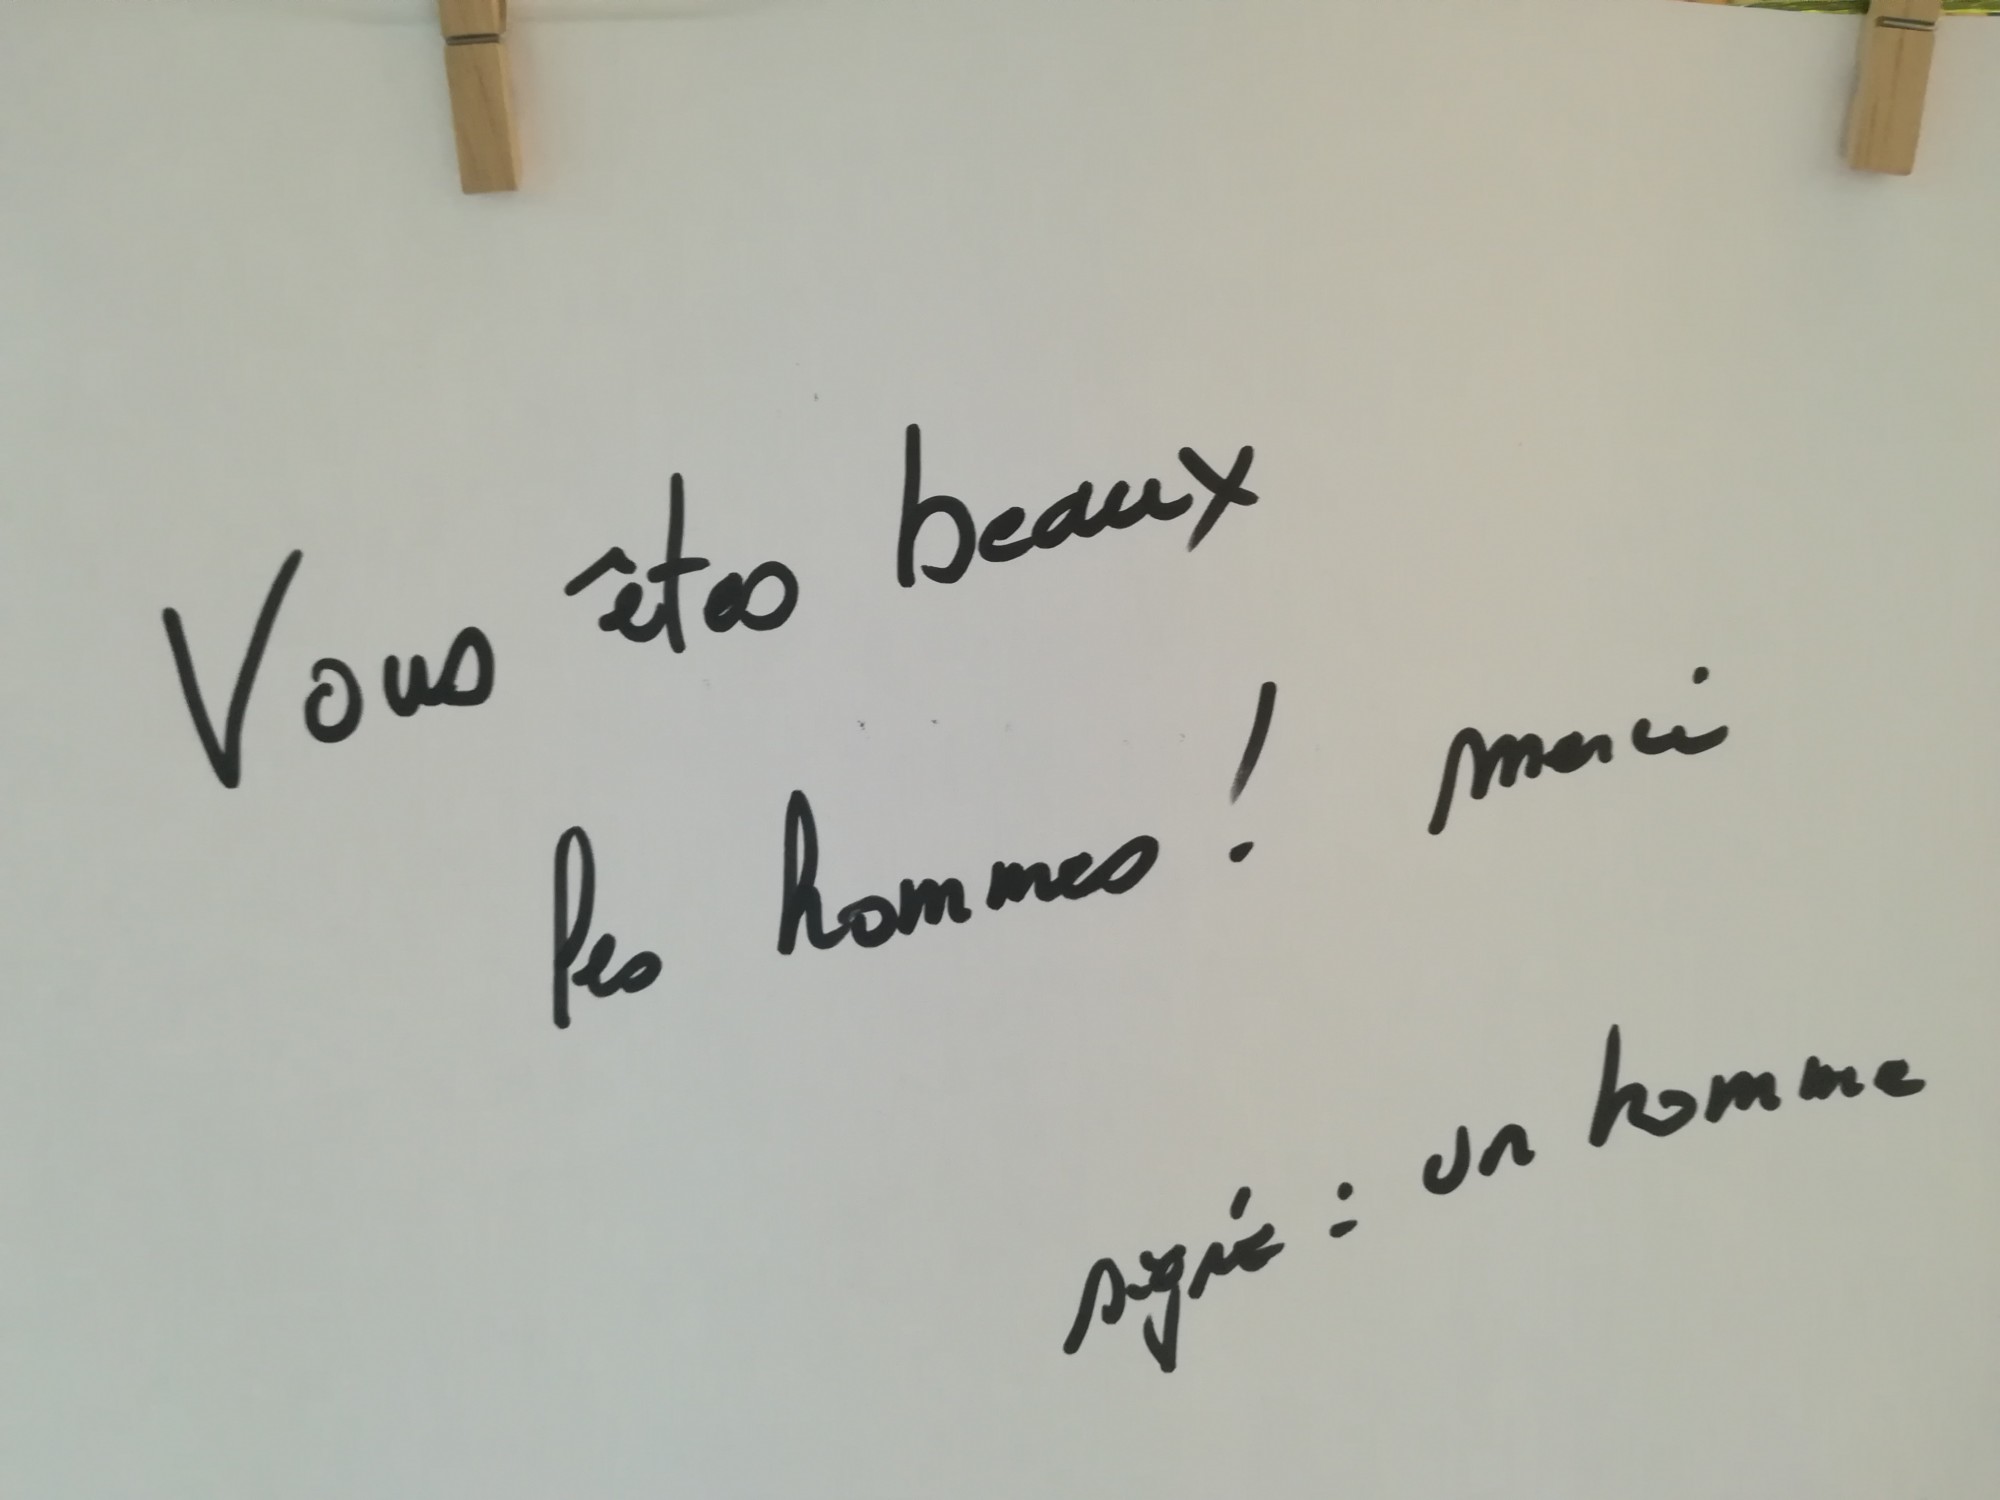 Vous êtes beaux
les hommes ! merci
signé : un homme